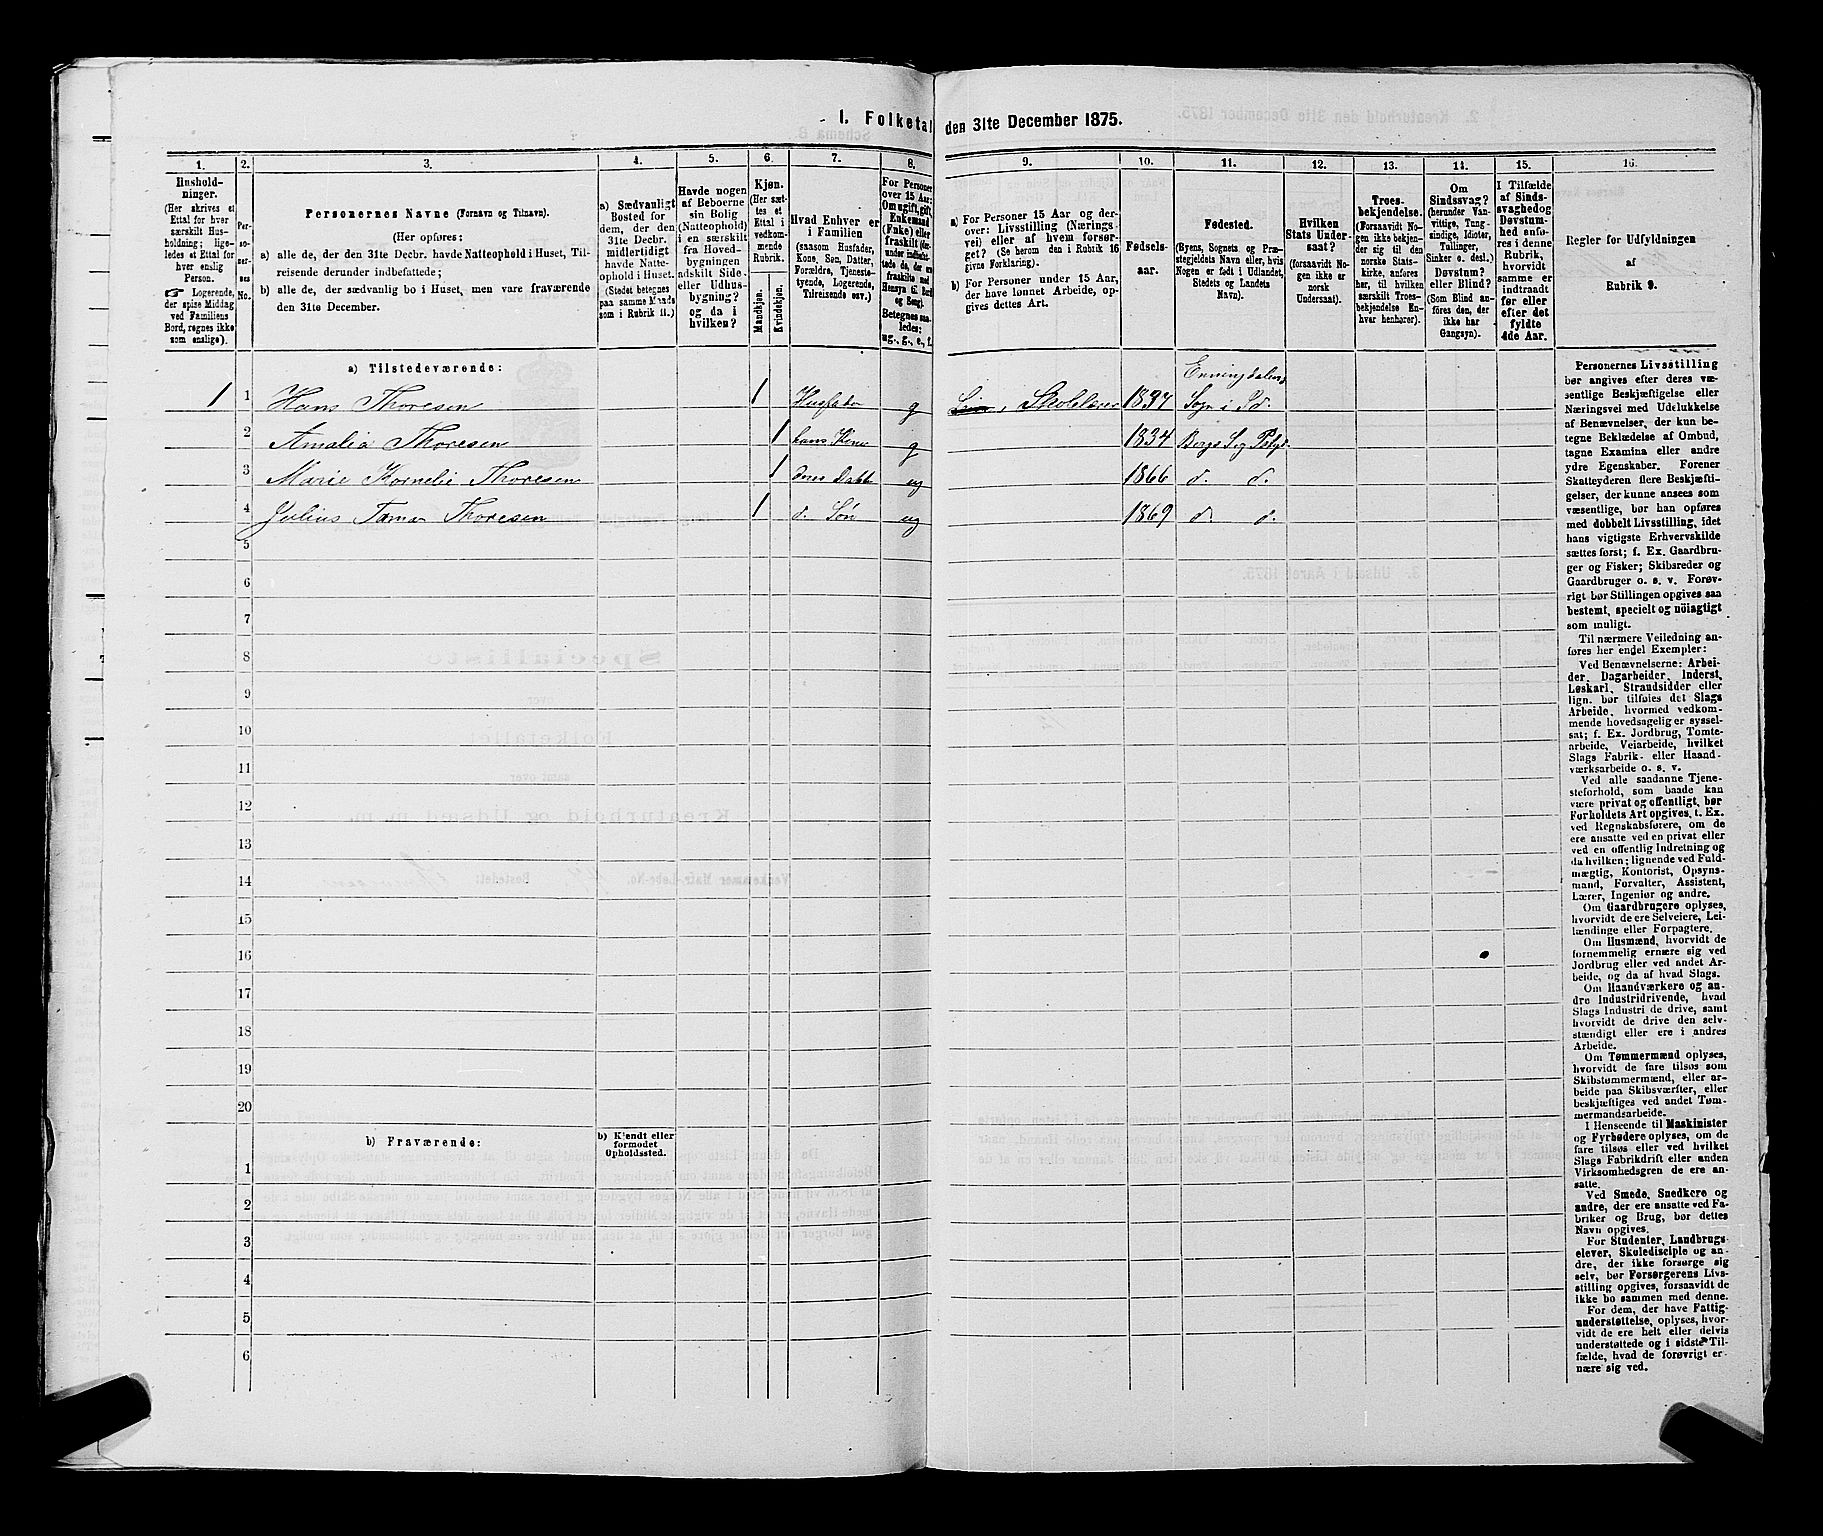 1. Folketal den 31te December 1875.
1.
2.
3.
4.
5.
6.
7.
8.
9.
10.
11.
12.
13.
14.
15.
16.
Hushold-
ninger.
(Her skrives et
Ettal for hver
særskilt Hus-
holdning; lige-
ledes et Ettal for
hver enslig
Person.
☞ Logerende,
der spise Middag
ved Familiens
Bord, regnes ikke
som enslige).
Per-
so-
ner-
nes
No.
Personernes Navne (Fornavn og Tilnavn).
(Her opføres:
a) alle de, der den 31te Decbr. havde Natteophold i Huset, Til-
reisende derunder indbefattede;
b) alle de, der sædvanlig bo i Huset, men vare fraværende
den 31te December.
a) Sædvanligt
Bosted for
dem, der den
31te Decbr.
midlertidigt
havde Natte-
ophold i Huset.
(Stedet betegnes
paa samme Maade
som i Rubrik 11.)
Havde nogen
af Beboerne
sin Bolig
(Natteophold)
i en særskilt
fra Hoved-
bygningen
adskilt Side-
eller Udhus-
bygning?
og da i
hvilken?
Kjøn.
(Her sæt-
tes et
Ettal i
vedkom-
mende
Rubrik.
Mandkjøn.
Kvindekjøn.
Hvad Enhver er
i Familien
(saasom Husfader,
Kone, Søn, Datter,
Forældre, Tjeneste-
tyende, Logerende,
Tilreisende osv.)
For Personer
over 15 Aar:
Om ugift, gift,
Enkemand
(Enke) eller
fraskilt
Betegnes saa-
ledes:
ug., g., e., f.
a) For Personer 15 Aar og der-
over: Livsstilling (Nærings-
vei) eller af hvem forsør-
get? (Se herom den i Rubrik 16
givne Forklaring).
b) For Personer under 15 Aar,
der have lønnet Arbeide, op-
gives dettes Art.
Fødsels-
aar.
Fødested.
(Byens, Sognets og Præ-
stegjeldets Navn eller, hvis
Nogen er født i Udlandet,
Stedets og Landets
Navn).
Hvilken
Stats Under-
saat?
(forsaavidt No-
gen ikke er
norsk
Undersaat).
Troes-
bekjendelse.
(Forsaavidt No-
gen ikke bekjen-
der sig til den
norske Stats-
kirke, anføres
her, til hvilken
særskilt Troes-
bekjendelse En-
hver henhører).
Om
Sindssvag?
(herunder Van-
vittige, Tung-
sindige, Idioter,
Tullinger,
Sinker o. desl.)
Døvstum?
eller Blind?
(Som Blind an-
føres den, der
ikke har
Gangsyn).
I Tilfælde
af Sinds-
svaghed og
Døvstum-
hed anfø-
res i denne
Rubrik,
hvorvidt
samme er
indtraadt
før eller
efter det
fyldte
4de Aar.
Regler for Udfyldningen
af
Rubrik 9.
a) Tilstedeværende:
1 1 Hans Thoresen 1 g Skolelærer 1837 Enningdalens
Sogn i Id.
2 Amalia Thoresen 1 hans Kone g 1834 Bergs Sog
3 Marie Kornelie Thoresen 1 deres Datt ug 1866 d. d.
4 Julius Thoresen 1 d. Søn ug 1869 d. d.
5
6
7
8
9
10
11
12
13
14
15
16
17
18
19
20
b) Fraværende:
b) Kjendt eller
formodet
Opholdssted.
1
2
3
4
5
6
Personernes Livsstilling
bør angives efter deres væ-
sentlige Beskjæftigelse eller
Næringsvei med Udelukkelse
af Benævnelser, der kun be-
tegne Beklædelse af Ombud,
tagne Examina eller andre
ydre Egenskaber. Forener
Skatteyderen flere Beskjæfti-
gelser, der kunne ansees som
væsentlige, bør han opføres
med dobbelt Livsstilling, idet
hans vigtigste Erhvervskilde
sættes først; f. Ex. Gaardbru-
ger og Fisker; Skibsreder og
Gaardbruger o. s. v. Forøv-
rigt bør Stillingen opgives saa
bestemt, specielt og nöiagtigt
som muligt.
Til nærmere Veiledning an-
føres her endel Exempler:
Ved Benævnelserne: Arbei-
der, Dagarbeider, Inderst,
Løskarl, Strandsidder eller
lign. bør tilføies det Slags
Arbeide, hvormed vedkom-
mende hovedsagelig er syssel-
sat; f. Ex. Jordbrug, Tomte-
arbeide, Veiarbeide, hvilket
Slags Fabrik- eller Haand-
værksarbeide o. s. v.
Ved alle saadanne Tjene-
steforhold, som baade kan
være privat og offentligt, bør
Forholdets Art opgives, t. Ex.
ved Regnskabsførere, om de
ere ansatte ved en privat eller
ved en offentlig Indretning og
da hvilken; lignende ved Fuld-
mægtig, Kontorist, Opsyns-
mand, Forvalter, Assistent,
Lærer, Ingeniør og andre.
Om Gaardbrugere oplyses,
hvorvidt de ere Selveiere, Lei-
lændinge eller Forpagtere.
Om Husmænd, hvorvidt de
fornemmelig ernære sig ved
Jordbrug eller ved andet Ar-
beide, og da af hvad Slags.
Om Haandværkere og an-
dre Industridrivende, hvad
Slags Industri de drive, samt
hvorvidt de drive den selv-
stændigt eller ere i andres
Arbeide.
Om Tømmermænd oplyses,
hvorvidt de fare tilsøs som
Skibstømmermænd, eller ar-
beide paa Skibsværfter, eller
beskjæftiges ved andet Tøm-
mermandsarbeide.
I Henseende til Maskinister
og Fyrbødere oplyses, om de
fare tilsøs eller ved hvilket
Slags Fabrikdrift eller anden
Virksomhedsgren de ere an-
satte.
Ved Smede, Snedkere og
andre, der ere ansatte ved Fa-
briker og Brug, bør dettes
Navn opgives.
For Studenter, Landbrugs-
elever, Skoledisciple og an-
dre, der ikke forsørge sig
selv, bør Forsørgerens Livs-
stilling opgives, forsaavidt de
ikke bo sammen med denne.
For dem, der have Fattig-
understøttelse, oplyses, hvor-
vidt de ere helt eller delvis
understøttede og i sidste Til-
fælde, hvad de forøvrigt er-
nære sig ved.